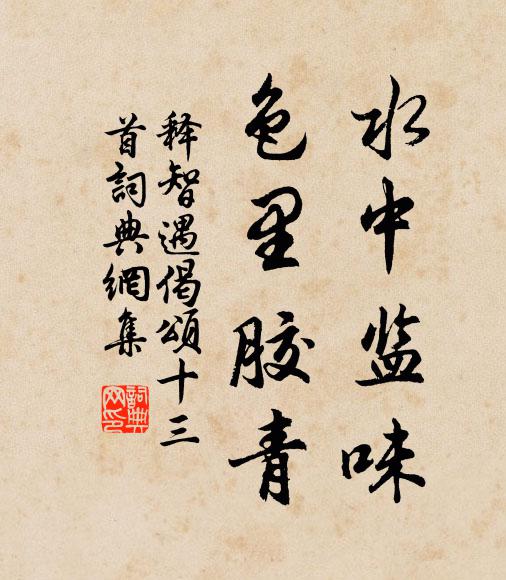 水中监味
色里胶青
释智遇偈颂十三
首詞典網集
詞典
网印